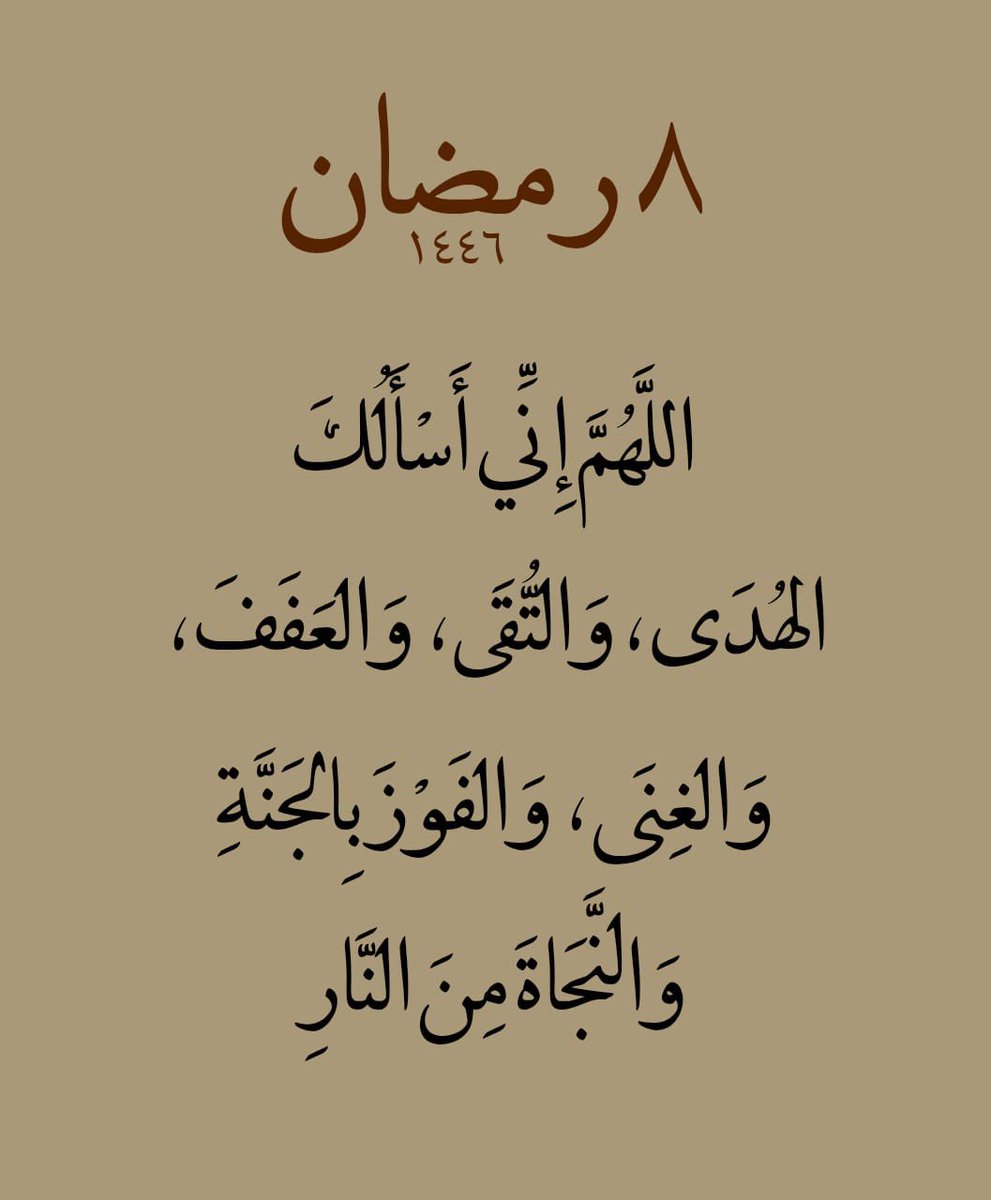 ٨ رمضان
١٤٤٦
اللَّهُمَّ إِنِّي أَسْأَلُكَ
الهُدَى، وَالتُّقَى، وَالعَفَفَ،
وَالغِنَى، وَالفَوْزَ بِالجَنَّةِ
وَالنَّجَاةَ مِنَ النَّارِ